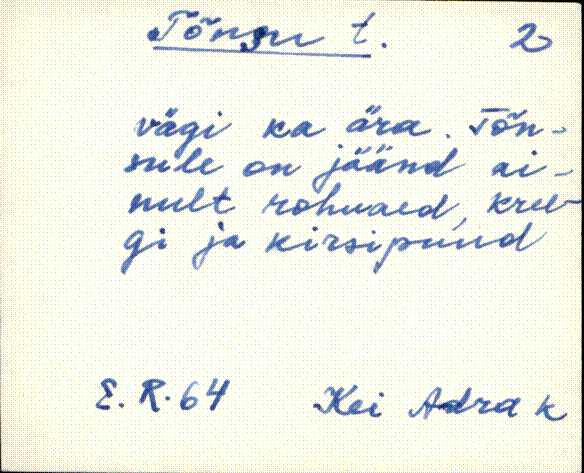 Tõnsu t. 2
vägi ka ära. Tõn-
sule on jäänd ai-
nult rohuaed, kree-
gi ja kirsipuud
E.R.64 Kei Adra k